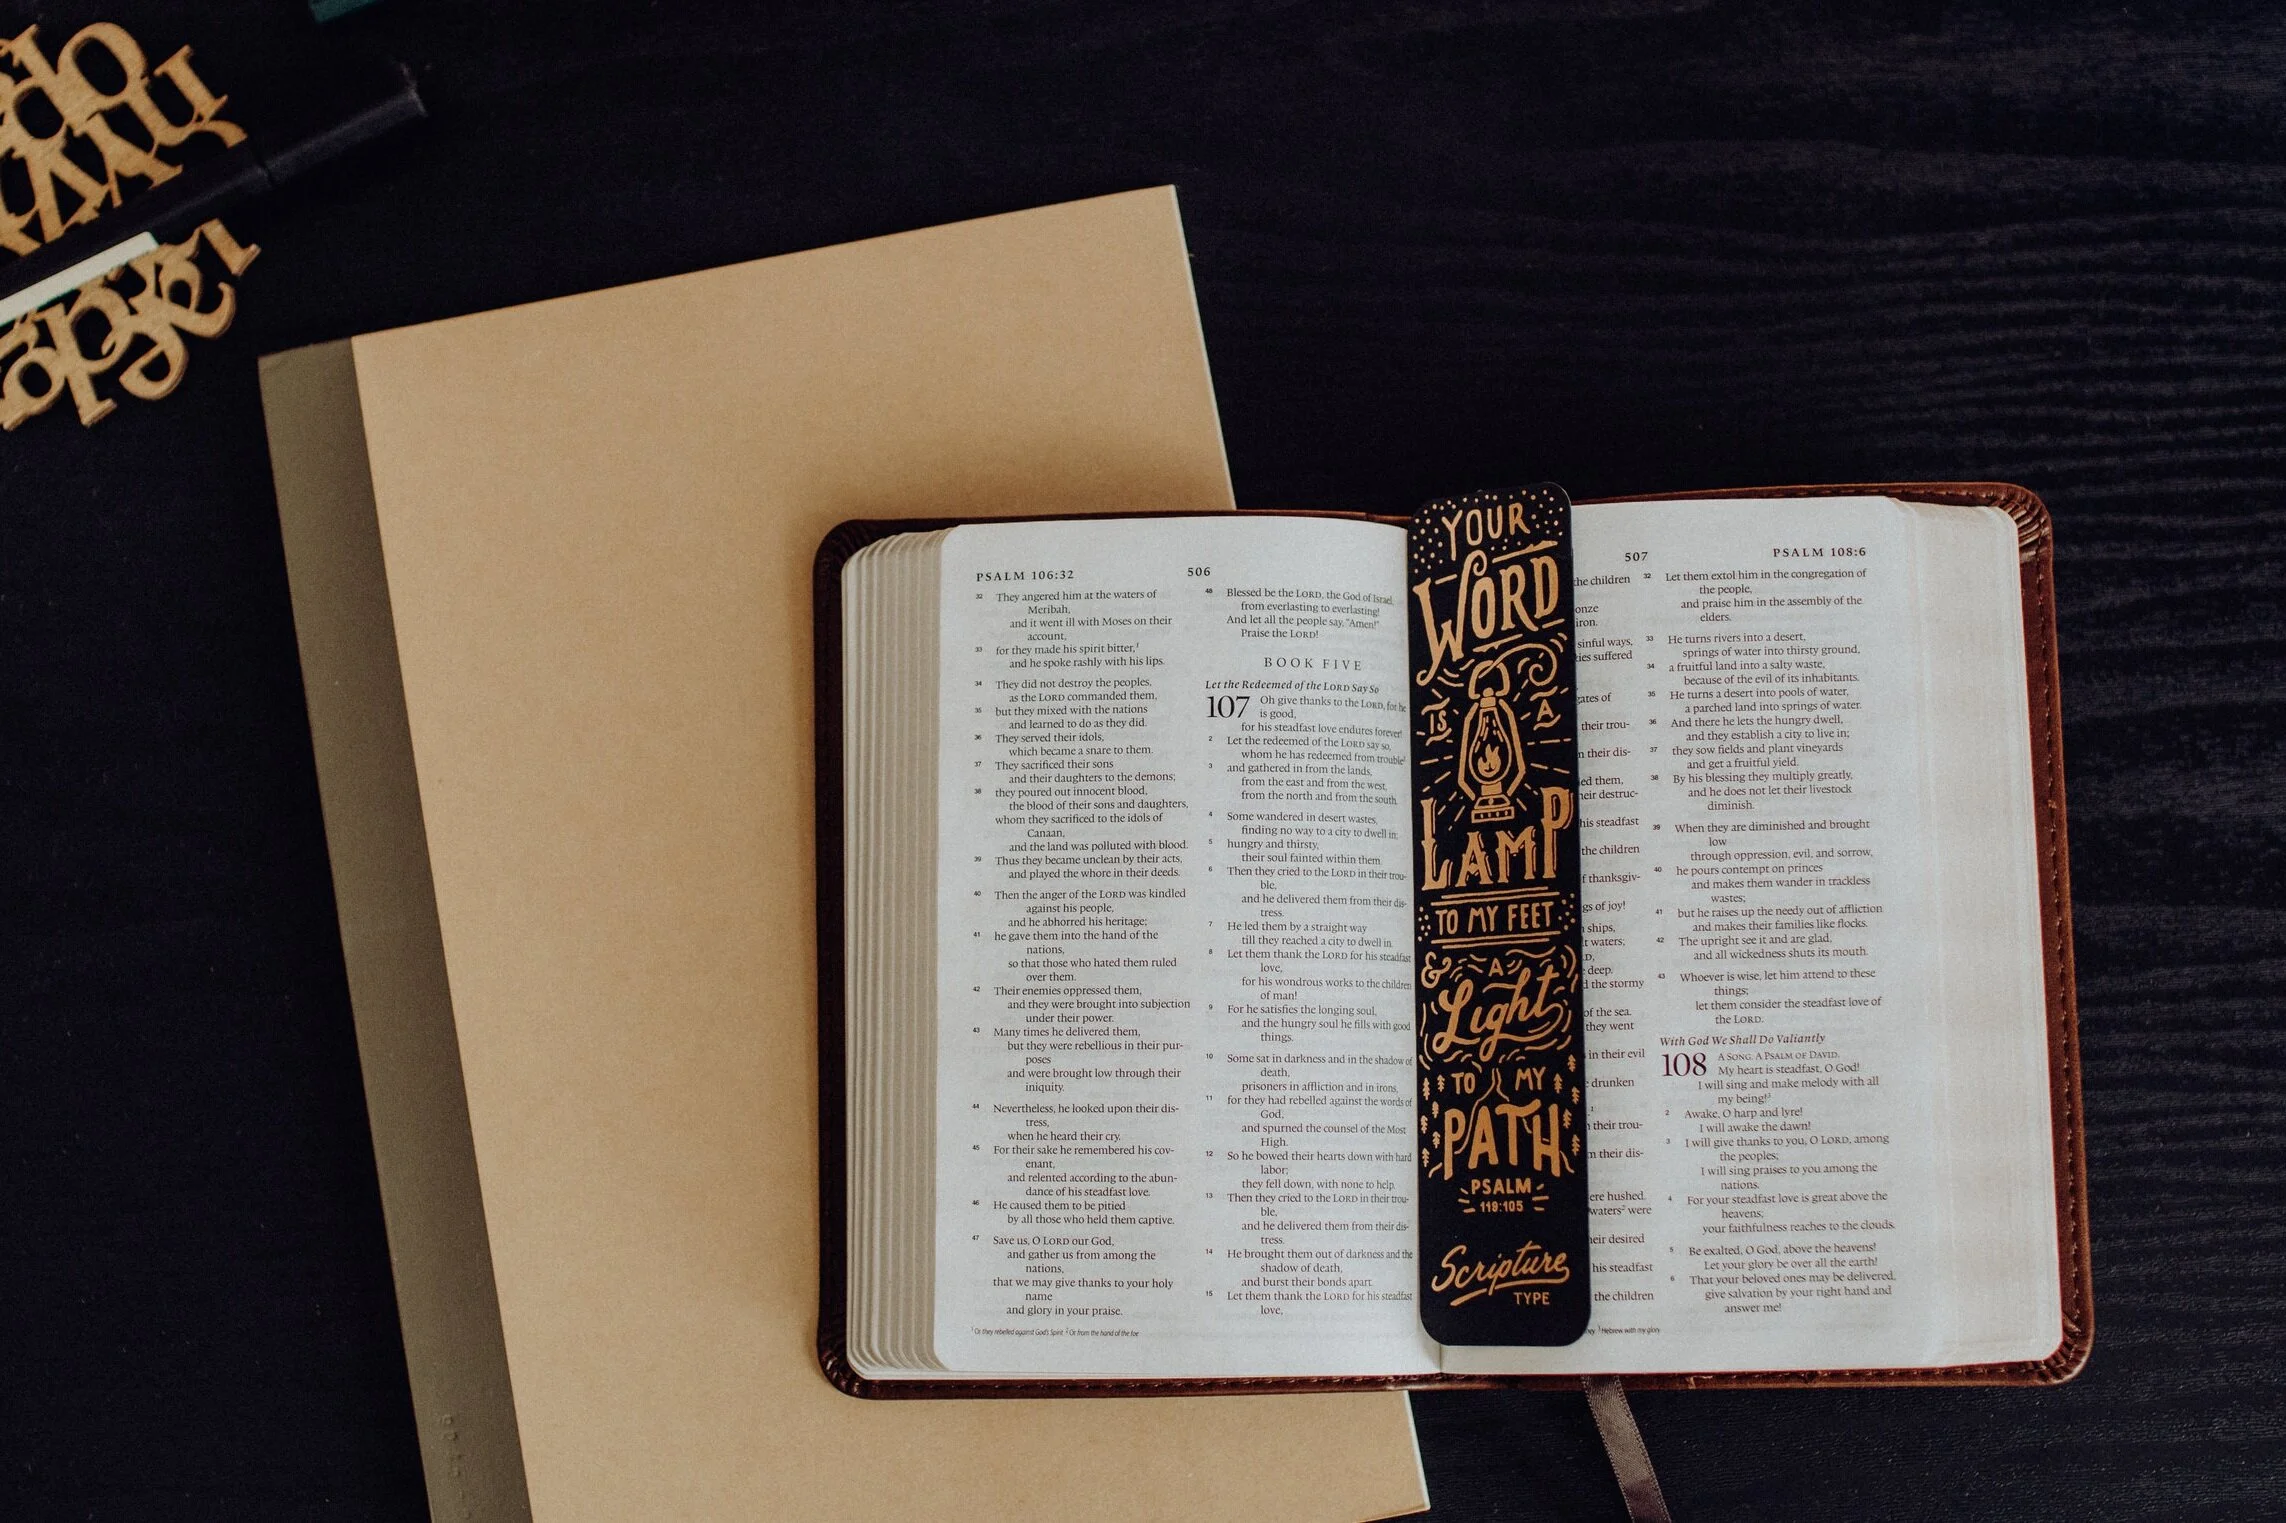 PSALM 106:32
506
32 They angered him at the waters of
Meribah,
and it went ill with Moses on their
account,
33 for they made his spirit bitter,1
and he spoke rashly with his lips.
34 They did not destroy the peoples,
as the LORD commanded them,
35 but they mixed with the nations
and learned to do as they did.
36 They served their idols,
which became a snare to them.
37 They sacrificed their sons
and their daughters to the demons;
38 they poured out innocent blood,
the blood of their sons and daughters,
whom they sacrificed to the idols of
Canaan,
and the land was polluted with blood.
39 Thus they became unclean by their acts,
and played the whore in their deeds.
40 Then the anger of the LORD was kindled
against his people,
and he abhorred his heritage;
41 he gave them into the hand of the
nations,
so that those who hated them ruled
over them.
42 Their enemies oppressed them,
and they were brought into subjection
under their power.
43 Many times he delivered them,
but they were rebellious in their pur-
poses
and were brought low through their
iniquity.
44 Nevertheless, he looked upon their dis-
tress,
when he heard their cry.
45 For their sake he remembered his cov-
enant,
and relented according to the abun-
dance of his steadfast love.
46 He caused them to be pitied
by all those who held them captive.
47 Save us, O LORD our God,
and gather us from among the
nations,
that we may give thanks to your holy
name
and glory in your praise.
1 Or they rebelled against God's Spirit 2 Or from the hand of the foe
48 Blessed be the LORD, the God of Israel,
from everlasting to everlasting!
And let all the people say, "Amen!"
Praise the LORD!
BOOK FIVE
Let the Redeemed of the LORD Say So
107 Oh give thanks to the LORD, for he
is good,
for his steadfast love endures forever!
2 Let the redeemed of the LORD say so,
whom he has redeemed from trouble2
3 and gathered in from the lands,
from the east and from the west,
from the north and from the south.
4 Some wandered in desert wastes,
finding no way to a city to dwell in;
5 hungry and thirsty,
their soul fainted within them.
6 Then they cried to the LORD in their trou-
ble,
and he delivered them from their dis-
tress.
7 He led them by a straight way
till they reached a city to dwell in.
8 Let them thank the LORD for his steadfast
love,
for his wondrous works to the children
of man!
9 For he satisfies the longing soul,
and the hungry soul he fills with good
things.
10 Some sat in darkness and in the shadow of
death,
prisoners in affliction and in irons,
11 for they had rebelled against the words of
God,
and spurned the counsel of the Most
High.
12 So he bowed their hearts down with hard
labor;
they fell down, with none to help.
13 Then they cried to the LORD in their trou-
ble,
and he delivered them from their dis-
tress.
14 He brought them out of darkness and the
shadow of death,
and burst their bonds apart.
15 Let them thank the LORD for his steadfast
love,
YOUR
WORD
IS A
LAMP
TO MY FEET
& A
Light
TO MY
PATH
PSALM
119:105
Scripture
TYPE
507
PSALM 108:6
the children
iron.
sinful ways,
suffered
their trou-
their dis-
destruc-
his steadfast
the children
of joy!
ships,
waters;
deep.
the stormy
of the sea.
they went
in their evil
drunken
their trou-
their dis-
hushed.
waters2 were
desired
his steadfast
the children
3 Hebrew with my glory
32 Let them extol him in the congregation of
the people,
and praise him in the assembly of the
elders.
33 He turns rivers into a desert,
springs of water into thirsty ground,
34 a fruitful land into a salty waste,
because of the evil of its inhabitants.
35 He turns a desert into pools of water,
a parched land into springs of water.
36 And there he lets the hungry dwell,
and they establish a city to live in;
37 they sow fields and plant vineyards
and get a fruitful yield.
38 By his blessing they multiply greatly,
and he does not let their livestock
diminish.
39 When they are diminished and brought
low
through oppression, evil, and sorrow,
40 he pours contempt on princes
and makes them wander in trackless
wastes;
41 but he raises up the needy out of affliction
and makes their families like flocks.
42 The upright see it and are glad,
and all wickedness shuts its mouth.
43 Whoever is wise, let him attend to these
things;
let them consider the steadfast love of
the LORD.
With God We Shall Do Valiantly
108 A SONG. A PSALM OF DAVID.
My heart is steadfast, O God!
I will sing and make melody with all
my being!3
2 Awake, O harp and lyre!
I will awake the dawn!
3 I will give thanks to you, O LORD, among
the peoples;
I will sing praises to you among the
nations.
4 For your steadfast love is great above the
heavens;
your faithfulness reaches to the clouds.
5 Be exalted, O God, above the heavens!
Let your glory be over all the earth!
6 That your beloved ones may be delivered,
give salvation by your right hand and
answer me!